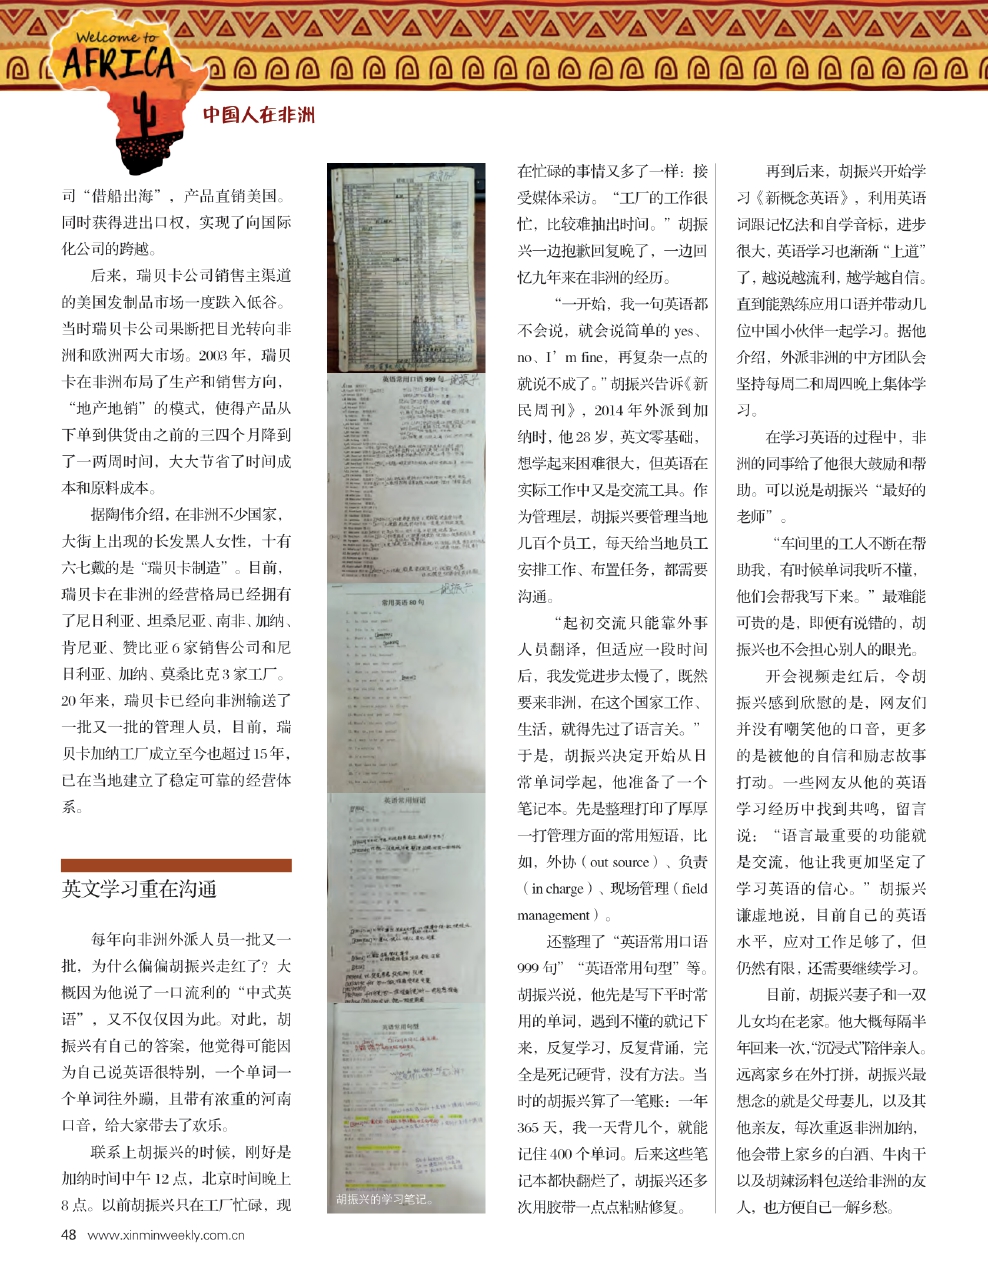 Welcome to
AFRICA
中国人在非洲
司“借船出海”，产品直销美国。
同时获得进出口权，实现了向国际
化公司的跨越。
后来，瑞贝卡公司销售主渠道
的美国发制品市场一度跌入低谷。
当时瑞贝卡公司果断把目光转向非
洲和欧洲两大市场。2003 年，瑞贝
卡在非洲布局了生产和销售方向，
“地产地销”的模式，使得产品从
下单到供货由之前的三四个月降到
了一两周时间，大大节省了时间成
本和原料成本。
据陶伟介绍，在非洲不少国家，
大街上出现的长发黑人女性，十有
六七戴的是“瑞贝卡制造”。目前，
瑞贝卡在非洲的经营格局已经拥有
了尼日利亚、坦桑尼亚、南非、加纳、
肯尼亚、赞比亚 6 家销售公司和尼
日利亚、加纳、莫桑比克 3 家工厂。
20 年来，瑞贝卡已经向非洲输送了
一批又一批的管理人员，目前，瑞
贝卡加纳工厂成立至今也超过 15 年，
已在当地建立了稳定可靠的经营体
系。
英文学习重在沟通
每年向非洲外派人员一批又一
批，为什么偏偏胡振兴走红了？大
概因为他说了一口流利的“中式英
语”，又不仅仅因为此。对此，胡
振兴有自己的答案，他觉得可能因
为自己说英语很特别，一个单词一
个单词往外蹦，且带有浓重的河南
口音，给大家带去了欢乐。
联系上胡振兴的时候，刚好是
加纳时间中午 12 点，北京时间晚上
8 点。以前胡振兴只在工厂忙碌，现
英语常用口语 999 句
常用英语 80 句
英语常用短语
英语常用句型
胡振兴的学习笔记。
在忙碌的事情又多了一样：接
受媒体采访。“工厂的工作很
忙，比较难抽出时间。”胡振
兴一边抱歉回复晚了，一边回
忆九年来在非洲的经历。
“一开始，我一句英语都
不会说，就会说简单的 yes、
no、I’m fine，再复杂一点的
就说不成了。”胡振兴告诉《新
民周刊》，2014 年外派到加
纳时，他 28 岁，英文零基础，
想学起来困难很大，但英语在
实际工作中又是交流工具。作
为管理层，胡振兴要管理当地
几百个员工，每天给当地员工
安排工作、布置任务，都需要
沟通。
“起初交流只能靠外事
人员翻译，但适应一段时间
后，我发觉进步太慢了，既然
要来非洲，在这个国家工作、
生活，就得先过了语言关。”
于是，胡振兴决定开始从日
常单词学起，他准备了一个
笔记本。先是整理打印了厚厚
一打管理方面的常用短语，比
如，外协（out source）、负责
（in charge）、现场管理（field
management）。
还整理了“英语常用口语
999 句”“英语常用句型”等。
胡振兴说，他先是写下平时常
用的单词，遇到不懂的就记下
来，反复学习，反复背诵，完
全是死记硬背，没有方法。当
时的胡振兴算了一笔账：一年
365 天，我一天背几个，就能
记住 400 个单词。后来这些笔
记本都快翻烂了，胡振兴还多
次用胶带一点点粘贴修复。
再到后来，胡振兴开始学
习《新概念英语》，利用英语
词跟记忆法和自学音标，进步
很大，英语学习也渐渐“上道”
了，越说越流利，越学越自信。
直到能熟练应用口语并带动几
位中国小伙伴一起学习。据他
介绍，外派非洲的中方团队会
坚持每周二和周四晚上集体学
习。
在学习英语的过程中，非
洲的同事给了他很大鼓励和帮
助。可以说是胡振兴“最好的
老师”。
“车间里的工人不断在帮
助我，有时候单词我听不懂，
他们会帮我写下来。”最难能
可贵的是，即便有说错的，胡
振兴也不会担心别人的眼光。
开会视频走红后，令胡
振兴感到欣慰的是，网友们
并没有嘲笑他的口音，更多
的是被他的自信和励志故事
打动。一些网友从他的英语
学习经历中找到共鸣，留言
说：“语言最重要的功能就
是交流，他让我更加坚定了
学习英语的信心。”胡振兴
谦虚地说，目前自己的英语
水平，应对工作足够了，但
仍然有限，还需要继续学习。
目前，胡振兴妻子和一双
儿女均在老家。他大概每隔半
年回来一次，“沉浸式”陪伴亲人。
远离家乡在外打拼，胡振兴最
想念的就是父母妻儿，以及其
他亲友，每次重返非洲加纳，
他会带上家乡的白酒、牛肉干
以及胡辣汤料包送给非洲的友
人，也方便自己一解乡愁。
48 www.xinminweekly.com.cn